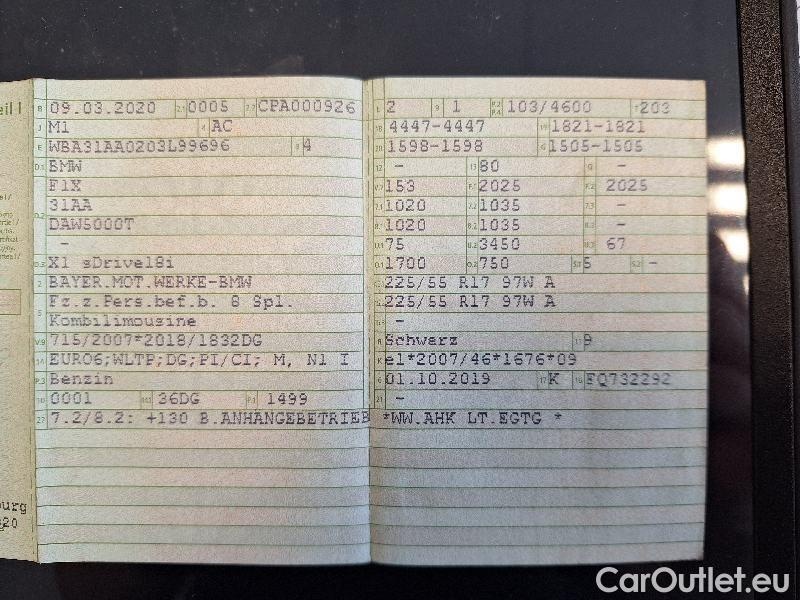 eil I
B 09.03.2020 2.1 0005 2.2 CPA000926
J M1 4 AC
E WBA31AA0203L99696 3 4
D.1 BMW
F1X
31AA
D.2 DAW5000T
-
D.3 X1 sDrive18i
2 BAYER.MOT.WERKE-BMW
Fz.z.Pers.bef.b. 8 Spl.
5 Kombilimousine
V.9 715/2007*2018/1832DG
14 EURO6;WLTP;DG;PI/CI; M, N1 I
P.3 Benzin
10 0001 14.1 36DG P.1 1499
22 7.2/8.2: +130 B.ANHANGEBETRIEB *WW.AHK LT.EGTG *
L 2 9 1 P.2 P.4 103/4600 T 203
18 4447-4447 19 1821-1821
20 1598-1598 G 1505-1505
12 - 13 80 Q -
V.7 153 F.1 2025 F.2 2025
7.1 1020 7.2 1035 7.3 -
8.1 1020 8.2 1035 8.3 -
U.1 75 U.2 3450 U.3 67
O.1 1700 O.2 750 S.1 5 S.2 -
15.1 225/55 R17 97W A
15.2 225/55 R17 97W A
15.3 -
R Schwarz 11 9
K e1*2007/46*1676*09
6 01.10.2019 17 K 16 FQ732292
21 -
burg
CarOutlet.eu